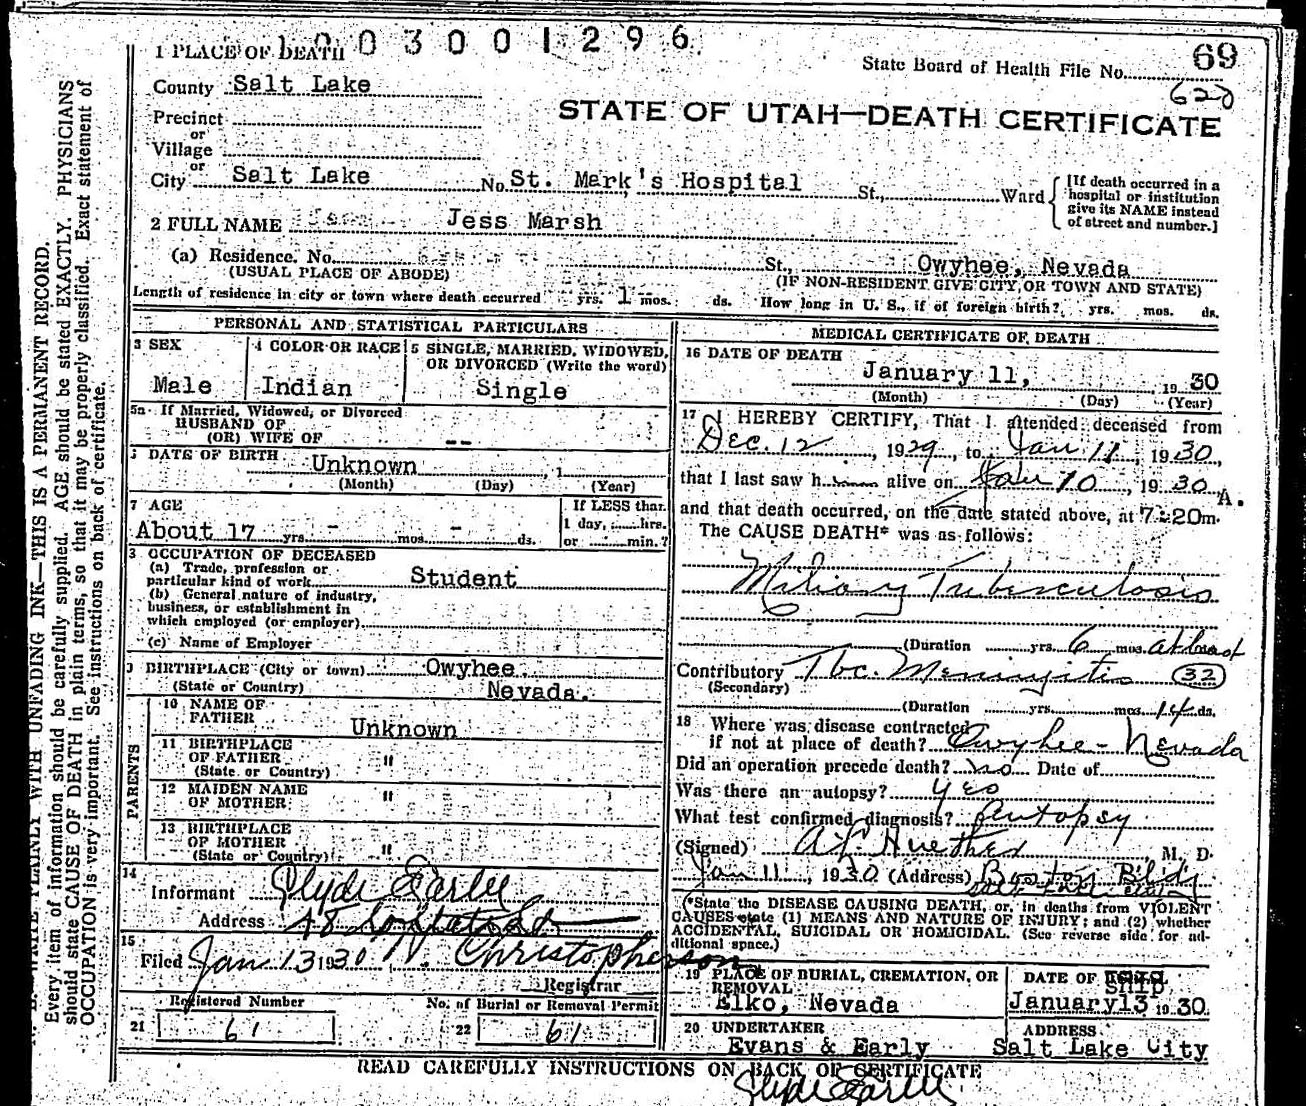 1 0 0 3 0 0 1 2 9 6
69
1 PLACE OF DEATH
State Board of Health File No.
County Salt Lake
STATE OF UTAH—DEATH CERTIFICATE
Precinct
or
Village
or
City Salt Lake No. St. Mark's Hospital St., Ward
[If death occurred in a
hospital or institution
give its NAME instead
of street and number.]
2 FULL NAME Jess Marsh
(a) Residence. No. St., Owyhee, Nevada
(USUAL PLACE OF ABODE) (IF NON-RESIDENT GIVE CITY OR TOWN AND STATE)
Length of residence in city or town where death occurred yrs. 1 mos. ds. How long in U. S., if of foreign birth? yrs. mos. ds.
PERSONAL AND STATISTICAL PARTICULARS
3 SEX 4 COLOR OR RACE 5 SINGLE, MARRIED, WIDOWED,
OR DIVORCED (Write the word)
Male Indian Single
5a If Married, Widowed, or Divorced
HUSBAND OF
(OR) WIFE OF --
DATE OF BIRTH Unknown , 1
(Month) (Day) (Year)
7 AGE If LESS than
About 17 yrs. - mos. - ds. 1 day, hrs.
or min.?
OCCUPATION OF DECEASED
(a) Trade, profession or
particular kind of work Student
(b) General nature of industry,
business, or establishment in
which employed (or employer)
(c) Name of Employer
BIRTHPLACE (City or town) Owyhee
(State or Country) Nevada.
PARENTS
10 NAME OF
FATHER Unknown
11 BIRTHPLACE
OF FATHER "
(State or Country)
12 MAIDEN NAME
OF MOTHER "
13 BIRTHPLACE
OF MOTHER "
(State or Country)
14
Informant Clyde Early
Address
15
Filed Jan 13 1930 Christopherson
Registrar
Registered Number No. of Burial or Removal Permit
21 61 22 61
MEDICAL CERTIFICATE OF DEATH
16 DATE OF DEATH
January 11, 19 30
(Month) (Day) (Year)
17 I HEREBY CERTIFY, That I attended deceased from
Dec. 12, 1929, to Jan 11, 1930,
that I last saw h alive on Jan 10, 1930
and that death occurred, on the date stated above, at 7:20 A. m.
The CAUSE DEATH* was as follows:
Miliary Tuberculosis
(Duration yrs. 6 mos. at least
Contributory Tbc. Meningitis 32
(Secondary)
(Duration yrs. mos. 14 ds.
18 Where was disease contracted
if not at place of death? Owyhee - Nevada
Did an operation precede death? no Date of
Was there an autopsy? yes
What test confirmed diagnosis? Autopsy
(Signed) Huether, M. D.
Jan 11, 1930 (Address) Boston Bldg
(*State the DISEASE CAUSING DEATH, or, in deaths from VIOLENT
CAUSES state (1) MEANS AND NATURE OF INJURY; and (2) whether
ACCIDENTAL, SUICIDAL OR HOMICIDAL. (See reverse side for ad-
ditional space.)
19 PLACE OF BURIAL, CREMATION, OR
REMOVAL
Elko, Nevada
DATE OF SHIP
January 13 19 30.
20 UNDERTAKER ADDRESS
Evans & Early Salt Lake City
READ CAREFULLY INSTRUCTIONS ON BACK OF CERTIFICATE
Clyde Early
WRITE PLAINLY WITH UNFADING INK—THIS IS A PERMANENT RECORD.
Every item of information should be carefully supplied. AGE should be stated EXACTLY. PHYSICIANS
should state CAUSE OF DEATH in plain terms, so that it may be properly classified. Exact statement of
OCCUPATION is very important. See instructions on back of certificate.